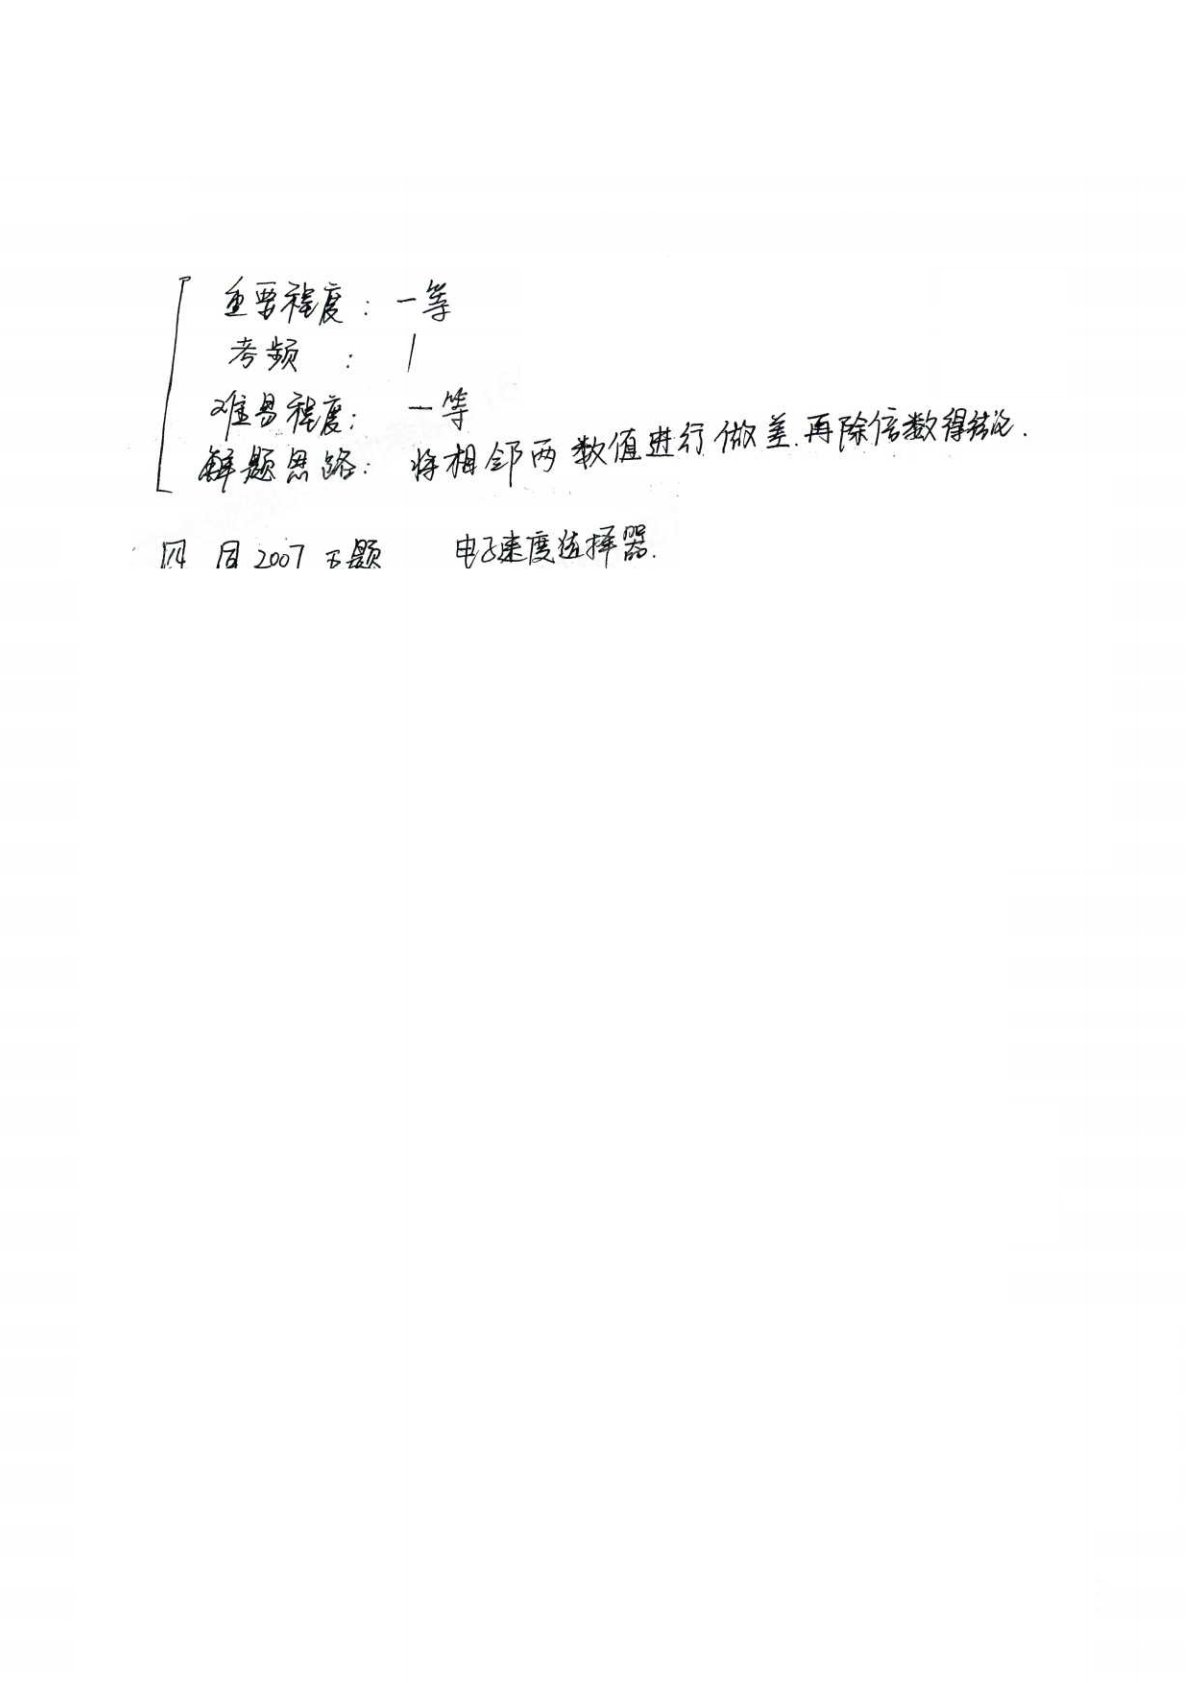 重要程度：一等
考频 ： 1
难易程度： 一等
解题思路： 将相邻两数值进行做差.再除倍数得结论.
四 同2007 五题 电子速度选择器.